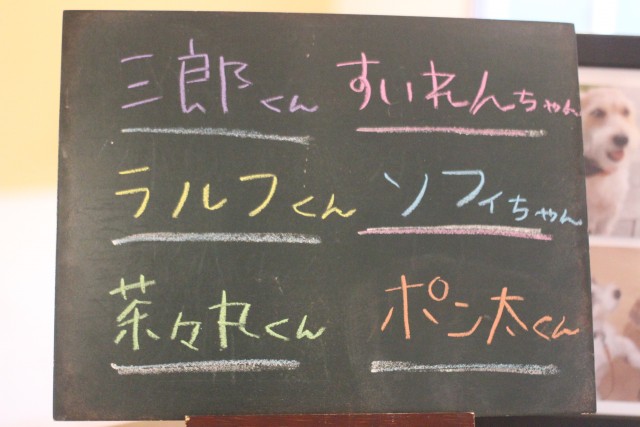 三郎くん すいれんちゃん
ラルフくん ソフィちゃん
茶々丸くん ポン太くん